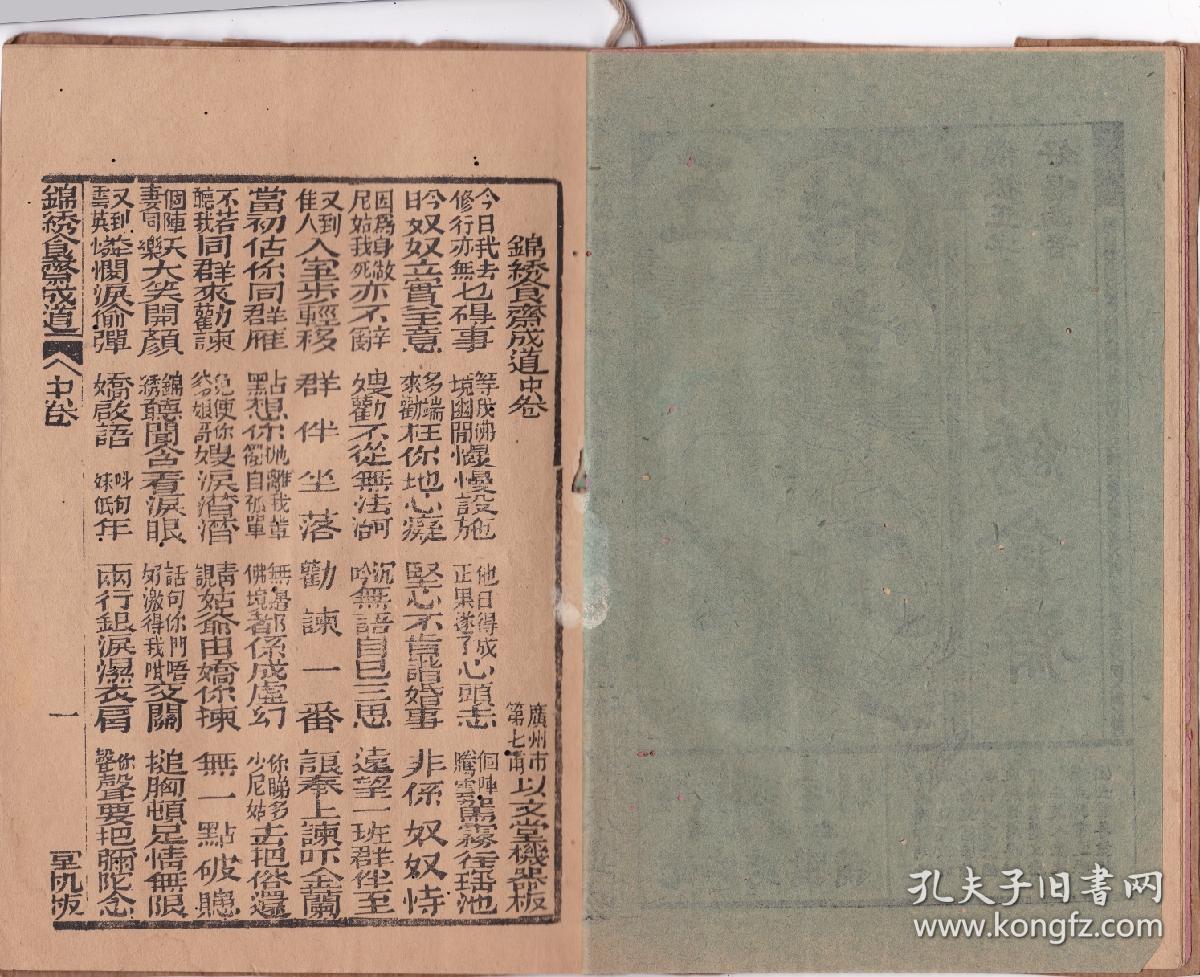 錦綉食齋成道中卷 廣州市第七甫以文堂機器板
今日我去修行亦無乜得事 等成佛境幽閒慢慢設施 他日得成正果遂了心頭志 個陣騰雲駕霧往瑤池
今日奴奴立實主意 多端來勸枉你地心癡 堅心不肯諧婚事 非係奴奴恃
因為身做尼姑我死亦不辭 嫂勸不從無法治 沉吟無語自己三思 遠望一班群伴至
又到佳人入室步輕移 群伴坐落 勸諫一番 詞奉上諫吓金蘭
當初估你同群雁 點想你拋離我輩獨自孤單 無邊佛境都係成虛幻 你睇多少尼姑去把俗還
不若聽我同群來勸諫 免使你爹娘哥嫂淚潸潸 請姑爺由嬌你揀 無一點破賬
個陣夫妻同樂大笑開顏 錦綉聽聞含着淚眼 話句你們唔好激得我咁交關 搥胸頓足情無限
又到雲英憐憫淚偷彈 嬌啟語 叫句妹低年 兩行銀淚濕衣肩 你聲聲要把彌陀念
錦綉食齋成道 中卷 一 呈機板
孔夫子旧书网
www.kongfz.com